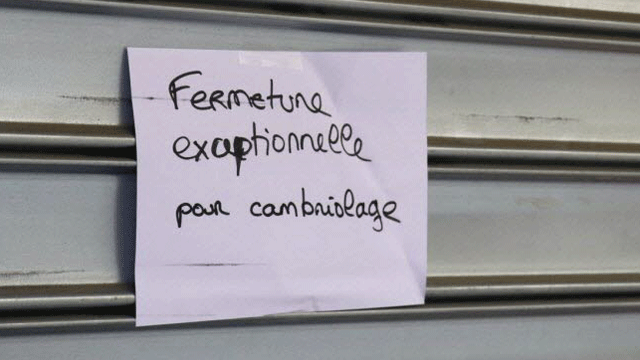 Fermeture
exceptionnelle
pour cambriolage